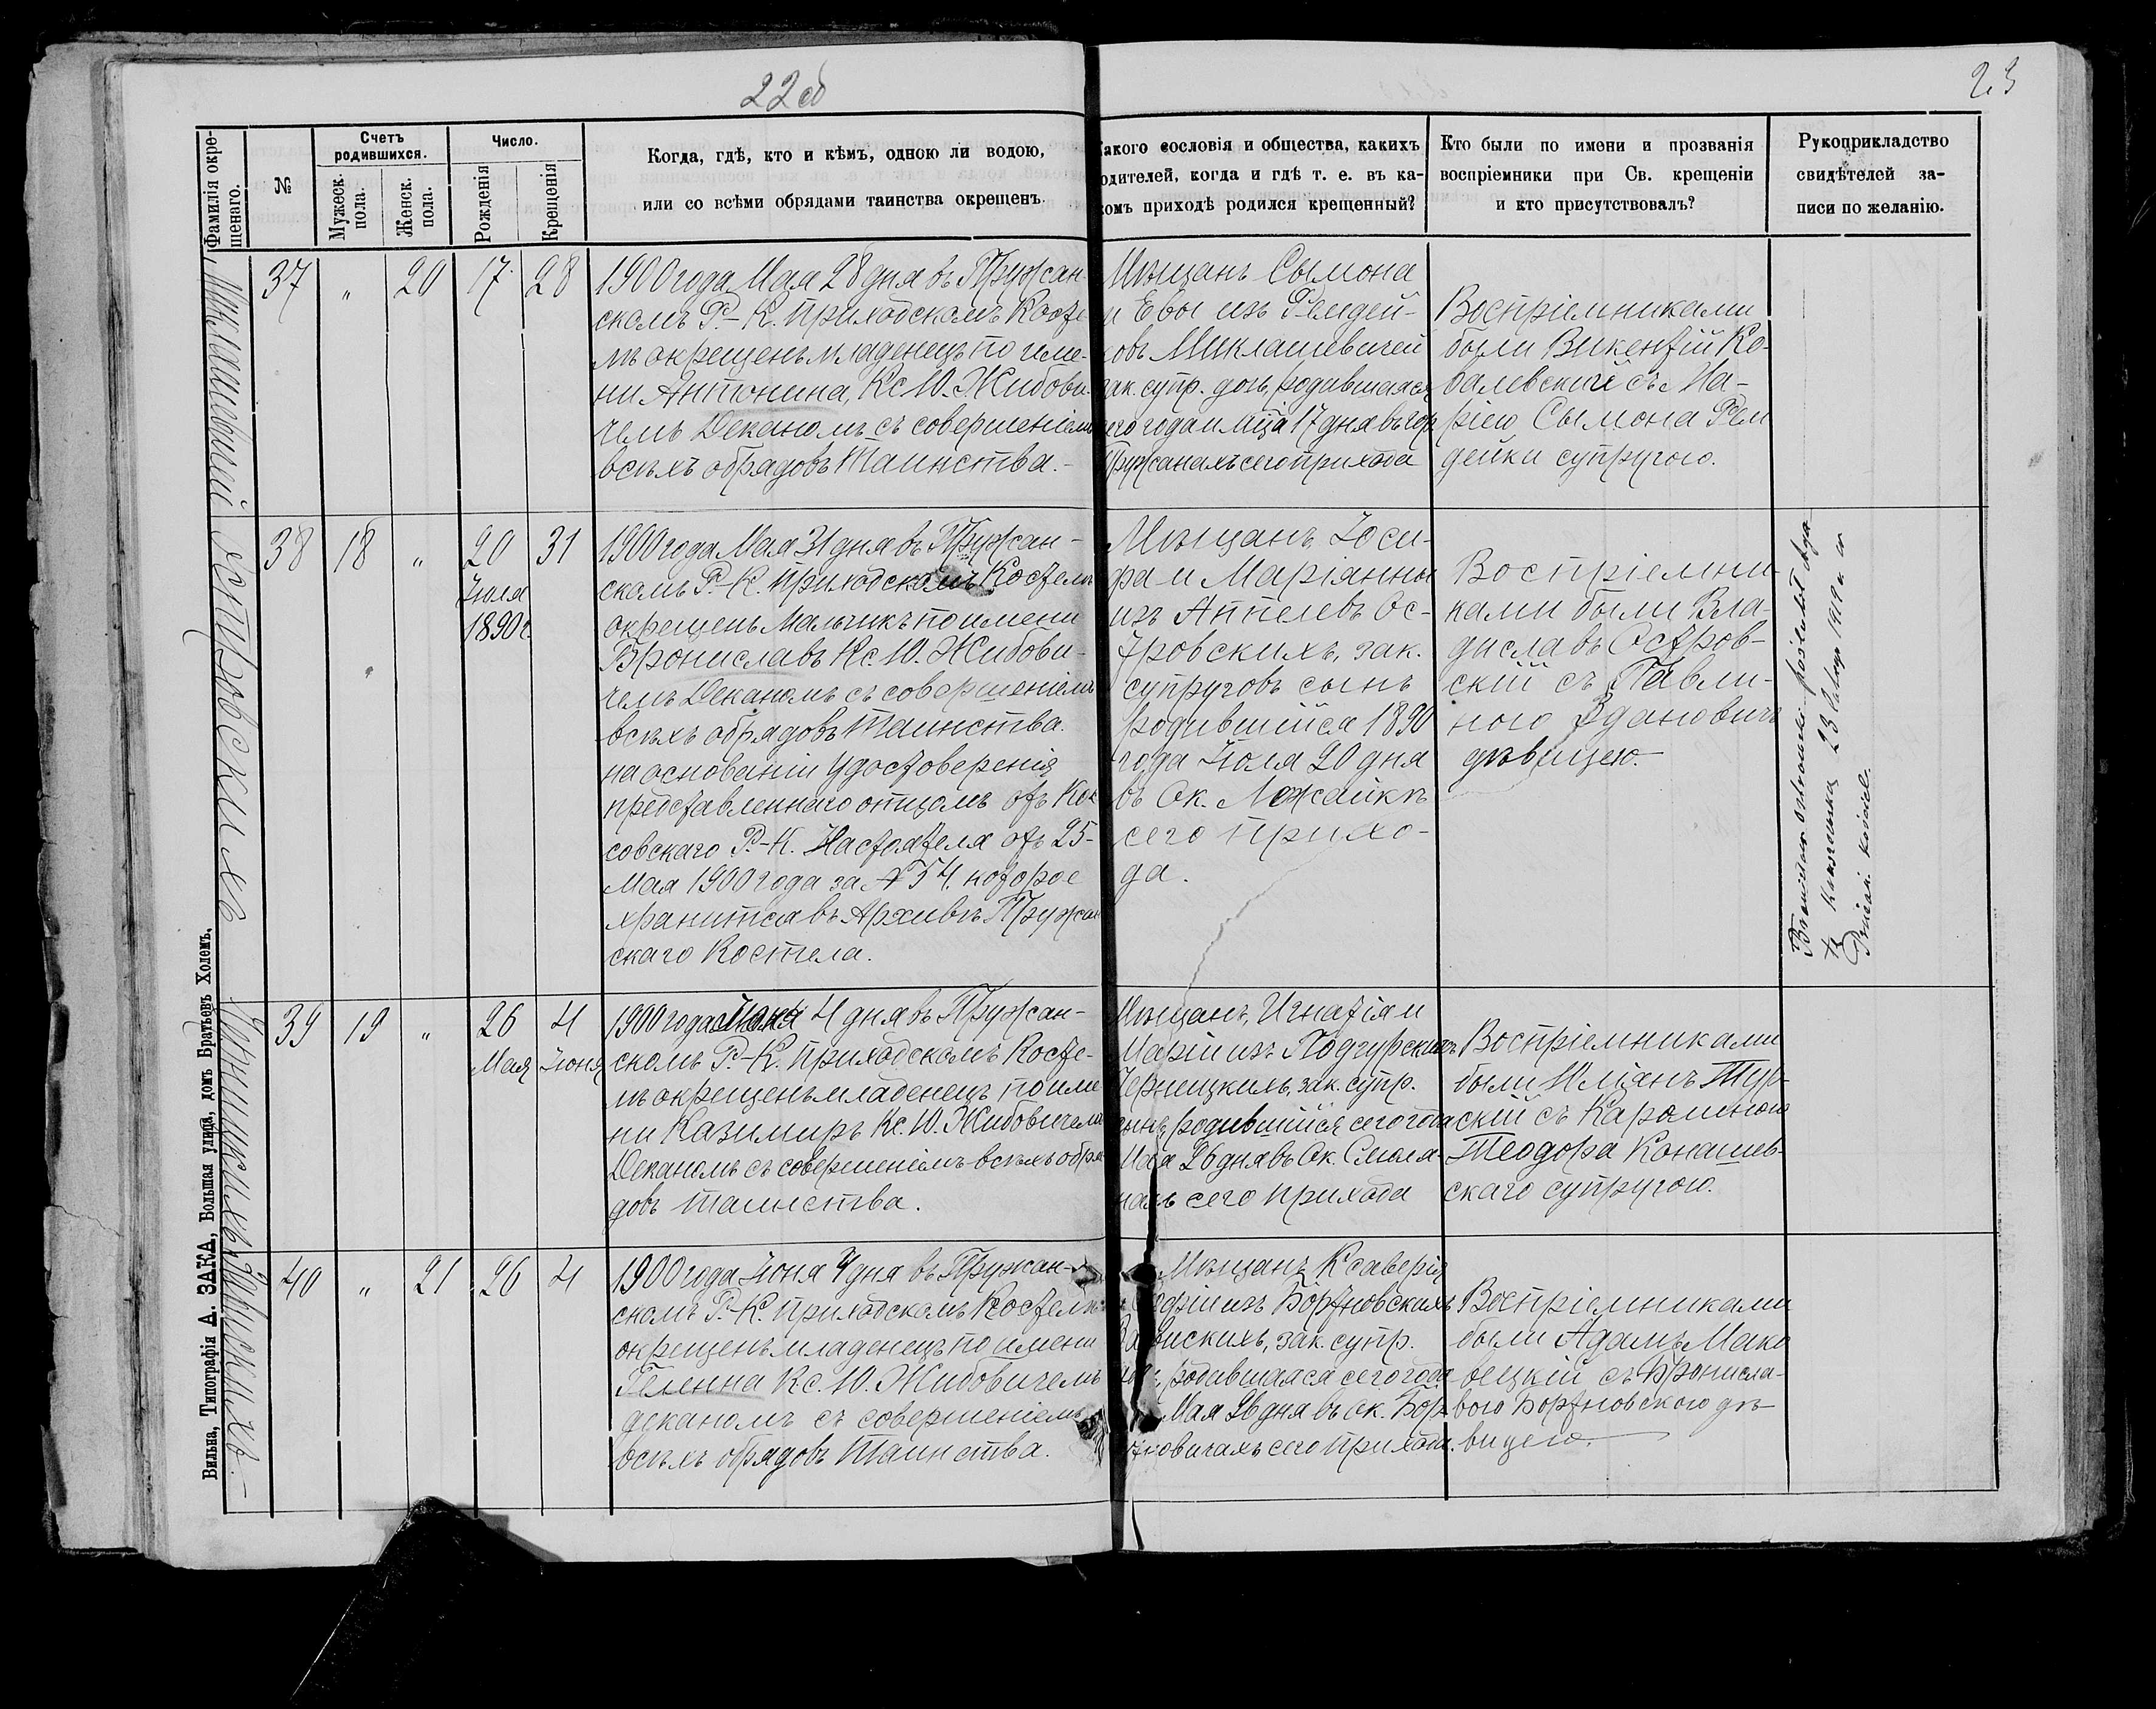 22об
23
Фамилія окре-
щенаго.
№
Счетъ
родившихся.
Мужеск.
пола.
Женск.
пола.
Число.
Рожденія
Крещенія
Когда, гдѣ, кто и кѣмъ, одною ли водою,
или со всѣми обрядами таинства окрещенъ.
акого сословія и общества, какихъ
одителей, когда и гдѣ т. е. въ ка-
комъ приходѣ родился крещенный?
Кто были по имени и прозванія
воспріемники при Св. крещеніи
и кто присутствовалъ?
Рукоприкладство
свидѣтелей за-
писи по желанію.
Миклашевичей
37 „ 20 17 28
1900 года Мая 28 дня въ Пружан-
скомъ Р.-К. приходскомъ Косте
лѣ окрещенъ младенецъ по име-
ни Антонина, Кс. Ю. Жибови-
чемъ Деканомъ съ совершеніемъ
всѣхъ обрядовъ Таинства.-
Мѣщанъ Сымона
и Евы изъ Ремдей-
ковъ Миклашевичей
зак. супр. дочь, родившаяся
сего года и мца 17 дня въ гор
Пружанахъ сего прихода
Воспріемниками
были Викентій Ко-
валевскій съ Ма-
ріею Сымона Рем
дейки супругою.
Островскихъ
38 18 „ 20 31
Іюля
1890 г.
1900 года Мая 31 дня въ Пружан-
скомъ Р.-К. приходскомъ Костелѣ
окрещенъ мальчикъ по имени
Брониславъ Кс. Ю. Жибови-
чемъ Деканомъ съ совершеніемъ
всѣхъ обрядовъ Таинства.
на основаніи удостоверенія
представленнаго отцомъ отъ Кос
совскаго Р.-К. Настоятеля отъ 25-
Мая 1900 года за № 54. которое
хранится въ Архивѣ Пружан
скаго Костела.
Мѣщанъ Іоси-
фа и Маріанны
изъ Аппелевъ Ос-
тровскихъ, зак.
супруговъ сынъ
родившійся 1890
года Іюля 20 дня
въ Ок. Можайкѣ
сего прихо-
да.
Воспріемни-
ками были Вла-
диславъ Остров-
скій съ Павли-
ною Здановичъ
дѣвицею.
Bronisław Ostrowski
23 1919 r.
kościele.
Черницкихъ
39 19 „ 26 4
Мая Іюня
1900 года Іюня 4 дня въ Пружан-
скомъ Р.-К. приходскомъ Косте-
лѣ окрещенъ младенецъ по име
ни Казимиръ Кс. Ю. Жибовичемъ
Деканомъ съ совершеніемъ всѣхъ обря
довъ таинства.
Мѣщанъ, Игнатія и
Маріи изъ Подгурскихъ
Черницкихъ, зак. супр.
сынъ, родившійся сего года
Мая 26 дня въ Ок. Смоля-
нахъ сего прихода
Воспріемниками
были Юліанъ Тур-
скій съ Каролиною
Теодора Конашев-
скаго супругою.
40 „ 21 26 4
1900 года Іюня 4 дня въ Пружан-
скомъ Р.-К. приходскомъ Костелѣ
окрещенъ младенецъ по имени
Геленна Кс. Ю. Жибовичемъ
деканомъ съ совершеніемъ
всѣхъ обрядовъ Таинства.
Мѣщанъ Ксаверія
Софіи изъ Бортновскихъ
зак. супр.
родившаяся сего года
Мая 26 дня въ ок. Борт
новичахъ сего прихода.
Воспріемниками
были Адамъ Мако
вецкій съ Бронисла-
вою Бортновского дѣ-
вицею.
Вильна, Типографія А. ЗАКА, Большая улица, домъ Братьевъ Холемъ.